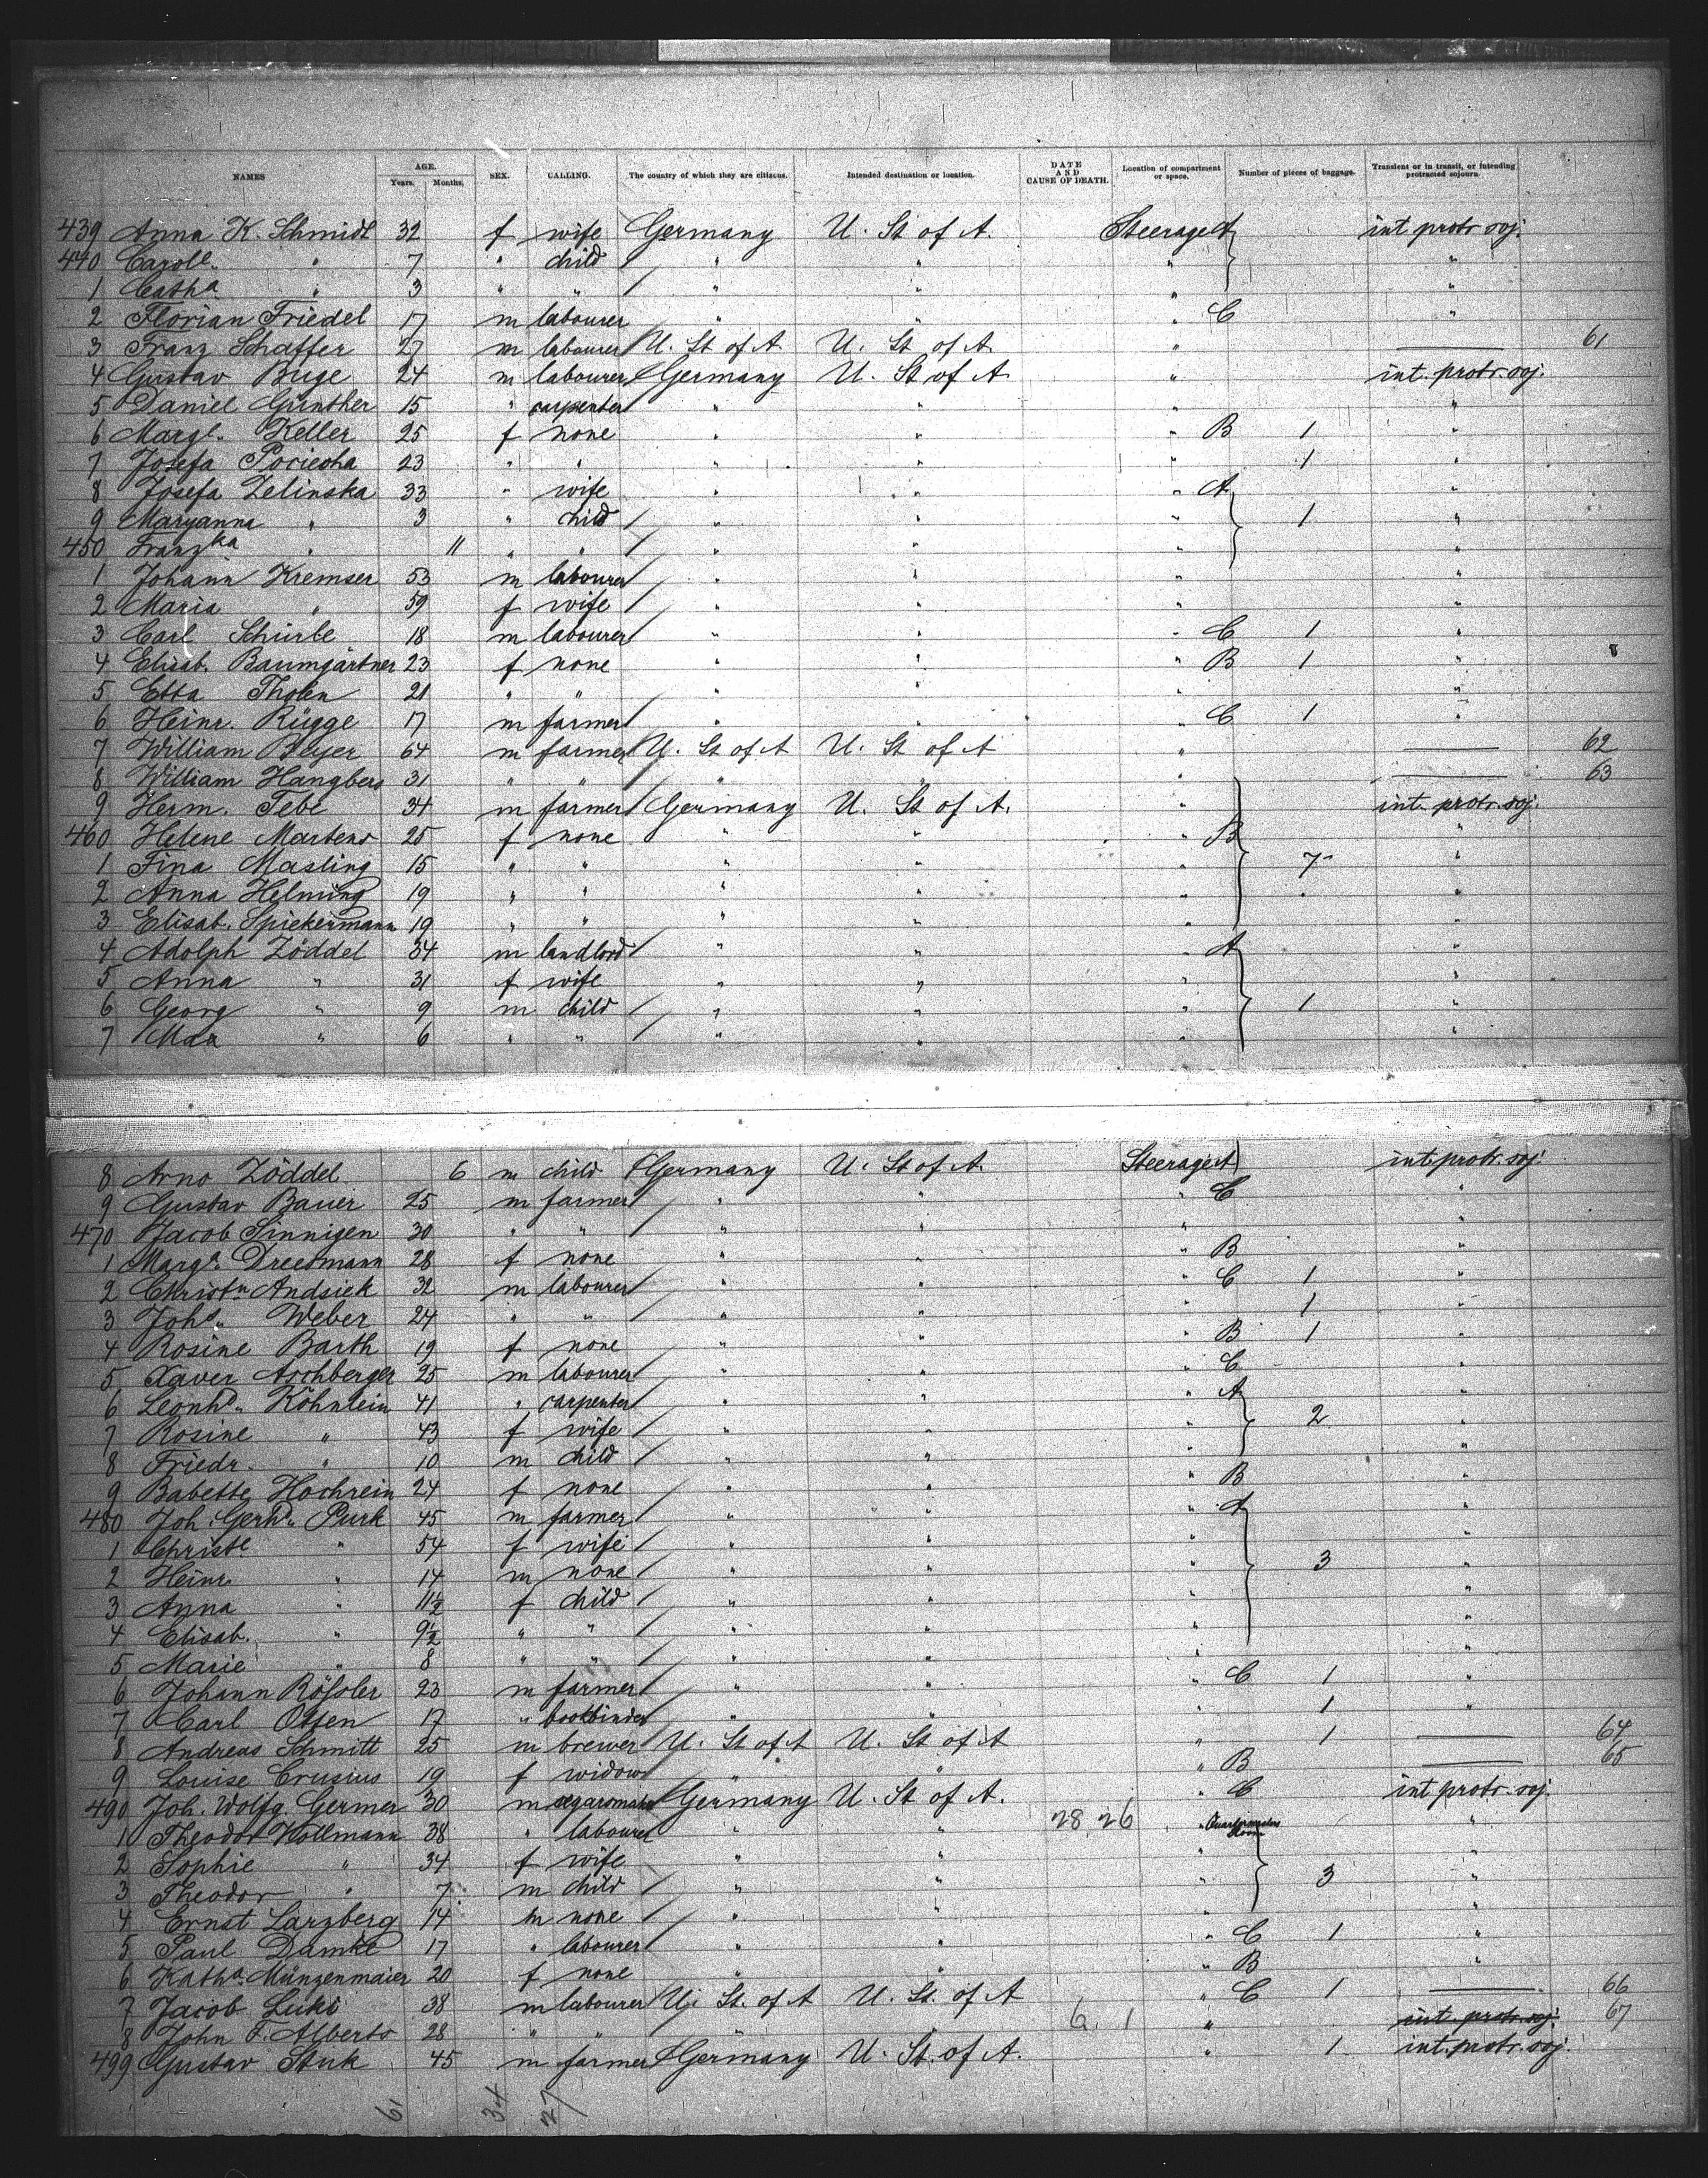 NAMES AGE. Years. Months. SEX. CALLING. The country of which they are citizens. Intended destination or location. DATE AND CAUSE OF DEATH. Location of compartment or space. Number of pieces of baggage. Transient or in transit, or intending protracted sojourn.
439 Anna K. Schmidt 32 f wife Germany U. St of A. Steerage A int protr soj.
440 Carole " 7 " child / " " " "
1 Catha " 3 " " / " " " "
2 Florian Friedel 17 m labourer " " " C "
3 Franz Schaffer 27 m labourer U. St of A U. St of A. " — 61
4 Gustav Buge 24 m labourer Germany U. St of A " int. protr. soj.
5 Daniel Günther 15 " carpenter " " " "
6 Margt. Keller 25 f none " " " B 1 "
7 Josefa 23 " " " " " 1 "
8 Josefa Zelinska 33 " wife " " " A "
9 Maryanna " 3 " child / " " " 1 "
450 Franzka " 11 " " / " " " "
1 Johann Kremser 53 m labourer / " " " "
2 Maria " 59 f wife / " " " "
3 Carl Schürle 18 m labourer / " " " C 1 "
4 Elisab. Baumgärtner 23 f none " " " B 1 "
5 Etta Tholen 21 " " / " " " "
6 Heinr. Rügge 17 m farmer / " " " C 1 "
7 William Beyer 64 m farmer U. St of A U. St of A " — 62
8 William Hangbers 31 " " " " " — 63
9 Herm. Tebe 34 m farmer Germany U. St of A. " int. protr. soj.
460 Helene Martens 25 f none " " " B "
1 Fina Masling 15 " " " " " 7 "
2 Anna Helming 19 " " " " " "
3 Elisab. Spiekermann 19 " " " " " "
4 Adolph Zöddel 34 m landlord / " " " A "
5 Anna " 31 f wife " " " "
6 Georg " 9 m child / " " " 1 "
7 Max " 6 " " / " " " "
8 Arno Zöddel 6 m child Germany U. St of A. Steerage A int. protr. soj.
9 Gustav Bauer 25 m farmer / " " " C "
470 Jacob Sinnigen 30 " " / " " " "
1 Marga. Dreesmann 28 f none " " " B "
2 Christn Andsiek 32 m labourer / " " " C 1 "
3 Joh. Weber 24 " " / " " " 1 "
4 Rosine Barth 19 f none " " " B 1 "
5 Xaver Aschberger 25 m labourer / " " " C "
6 Leonhd. Köhnlein 41 " carpenter " " " A "
7 Rosine " 43 f wife / " " " 2 "
8 Friedr. " 10 m child / " " " "
9 Babette Hochrein 24 f none / " " " B "
480 Joh. Gerhd. Purk 45 m farmer / " " " A "
1 Christe " 54 f wife / " " " "
2 Heinr. " 14 m none / " " " 3 "
3 Anna " 11½ f child / " " " "
4 Elisab. " 9½ " " / " " " "
5 Marie " 8 " " / " " " "
6 Johann Rößler 23 m farmer / " " " C 1 "
7 Carl Otten 17 " bookbinder " " " 1 "
8 Andreas Schmitt 25 m brewer U. St of A U. St of A " 1 — 64
9 Louise Crusius 19 f widow " " " B — 65
490 Joh. Wolfg. Germer 30 m Germany U. St of A. " C int protr. soj.
1 Theodor Kollmann 38 " labourer " " 28 26 " Quartermasters Room "
2 Sophie " 34 f wife / " " " "
3 Theodor " 7 m child / " " " 3 "
4 Ernst Larzberg 14 m none / " " " "
5 Paul Damke 17 " labourer / " " " C 1 "
6 Katha. Münzenmaier 20 f none " " " B "
7 Jacob Luki 38 m labourer U. St. of A U. St. of A " C 1 — 66
8 John F. Alberts 28 " " " 6. 1 " int. protr. soj. 67
499 Gustav Stuk 45 m farmer Germany U. St. of A. " 1 int. protr. soj.
61 34 27